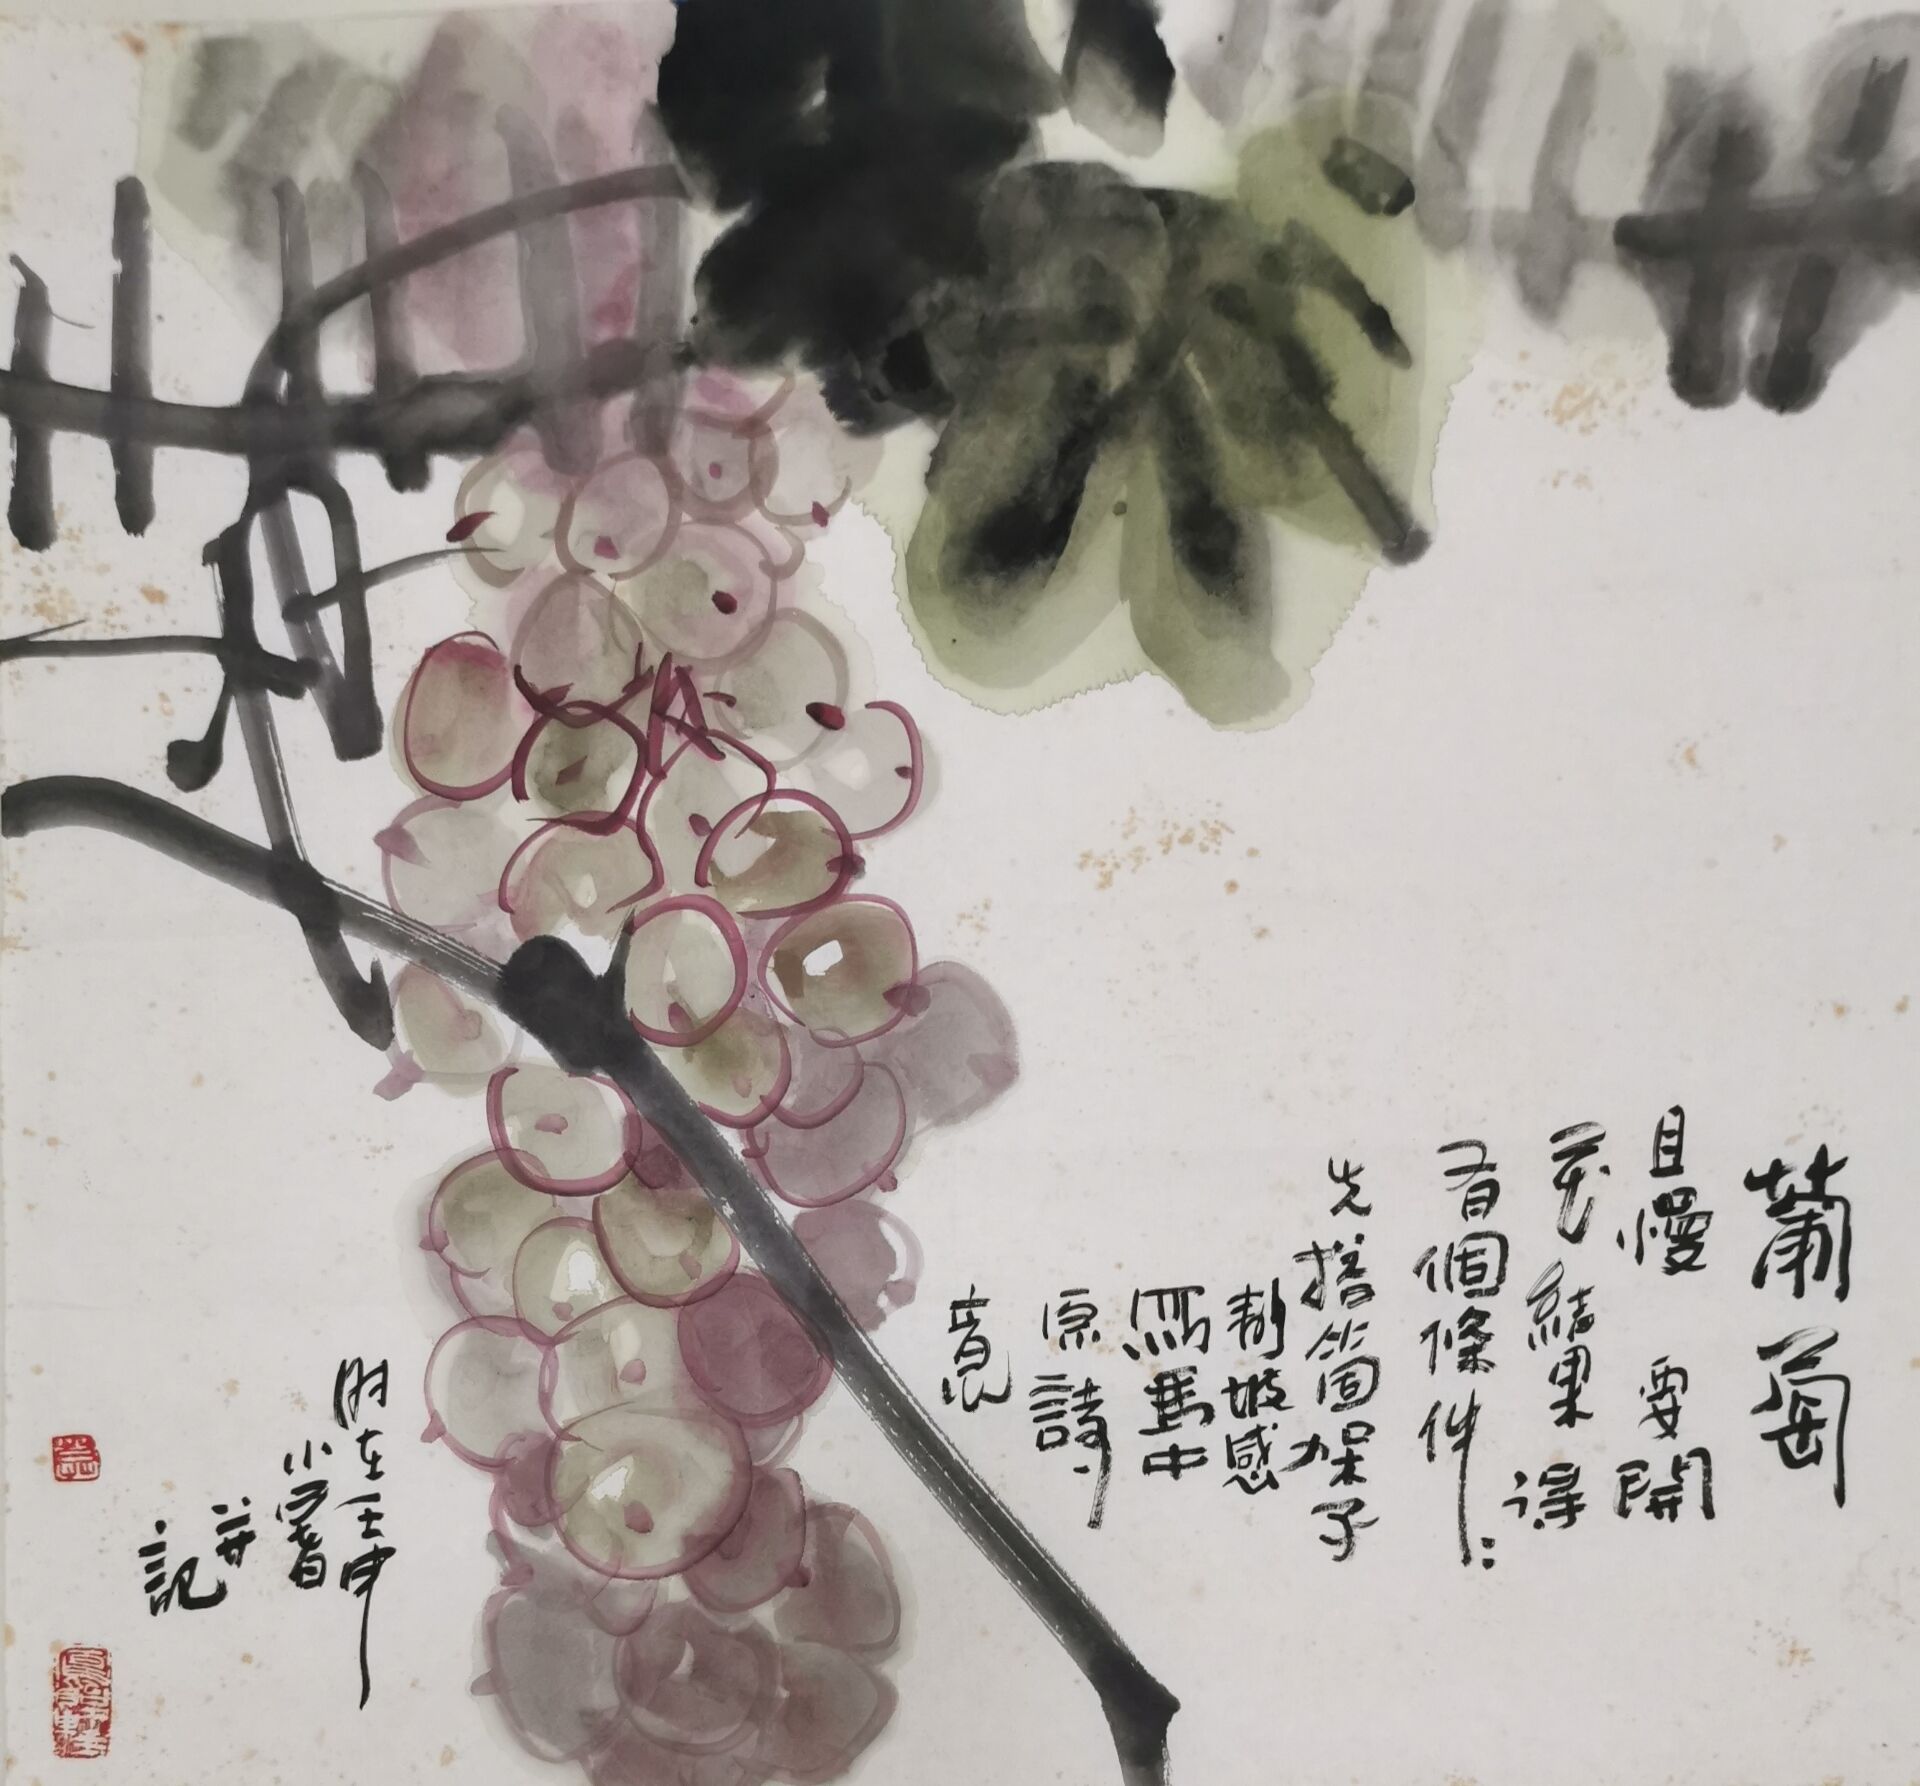 葡萄
且慢 要開
花結果 得
有個條件：
先搭箇架子
坡感
馬中
原詩
意
時在壬申
小暑
并
記